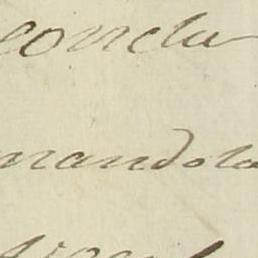 conclu
mandola